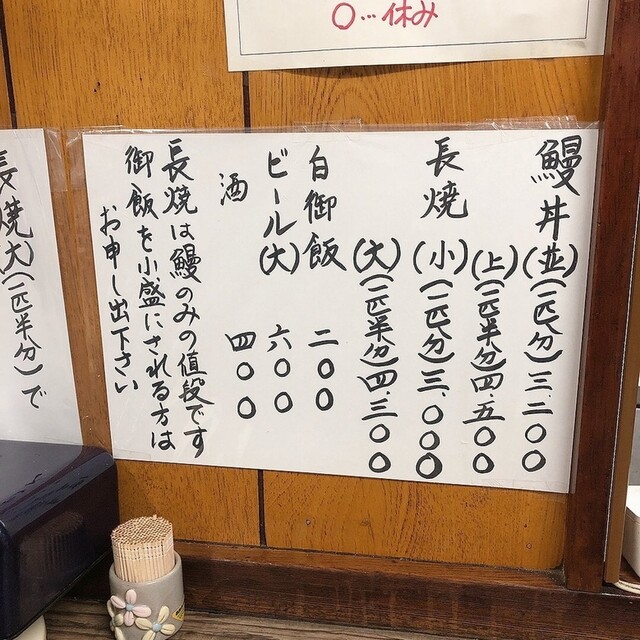 ○…休み
鰻丼(並)(一匹分)三、二〇〇
(上)(一匹半分)四、五〇〇
長焼(小)(一匹分)三、〇〇〇
(大)(一匹半分)四、三〇〇
白御飯 二〇〇
ビール(大) 六〇〇
酒 四〇〇
長焼は鰻のみの値段です
御飯を小盛にされる方は
お申し出下さい
長焼(大)(一匹半分)で